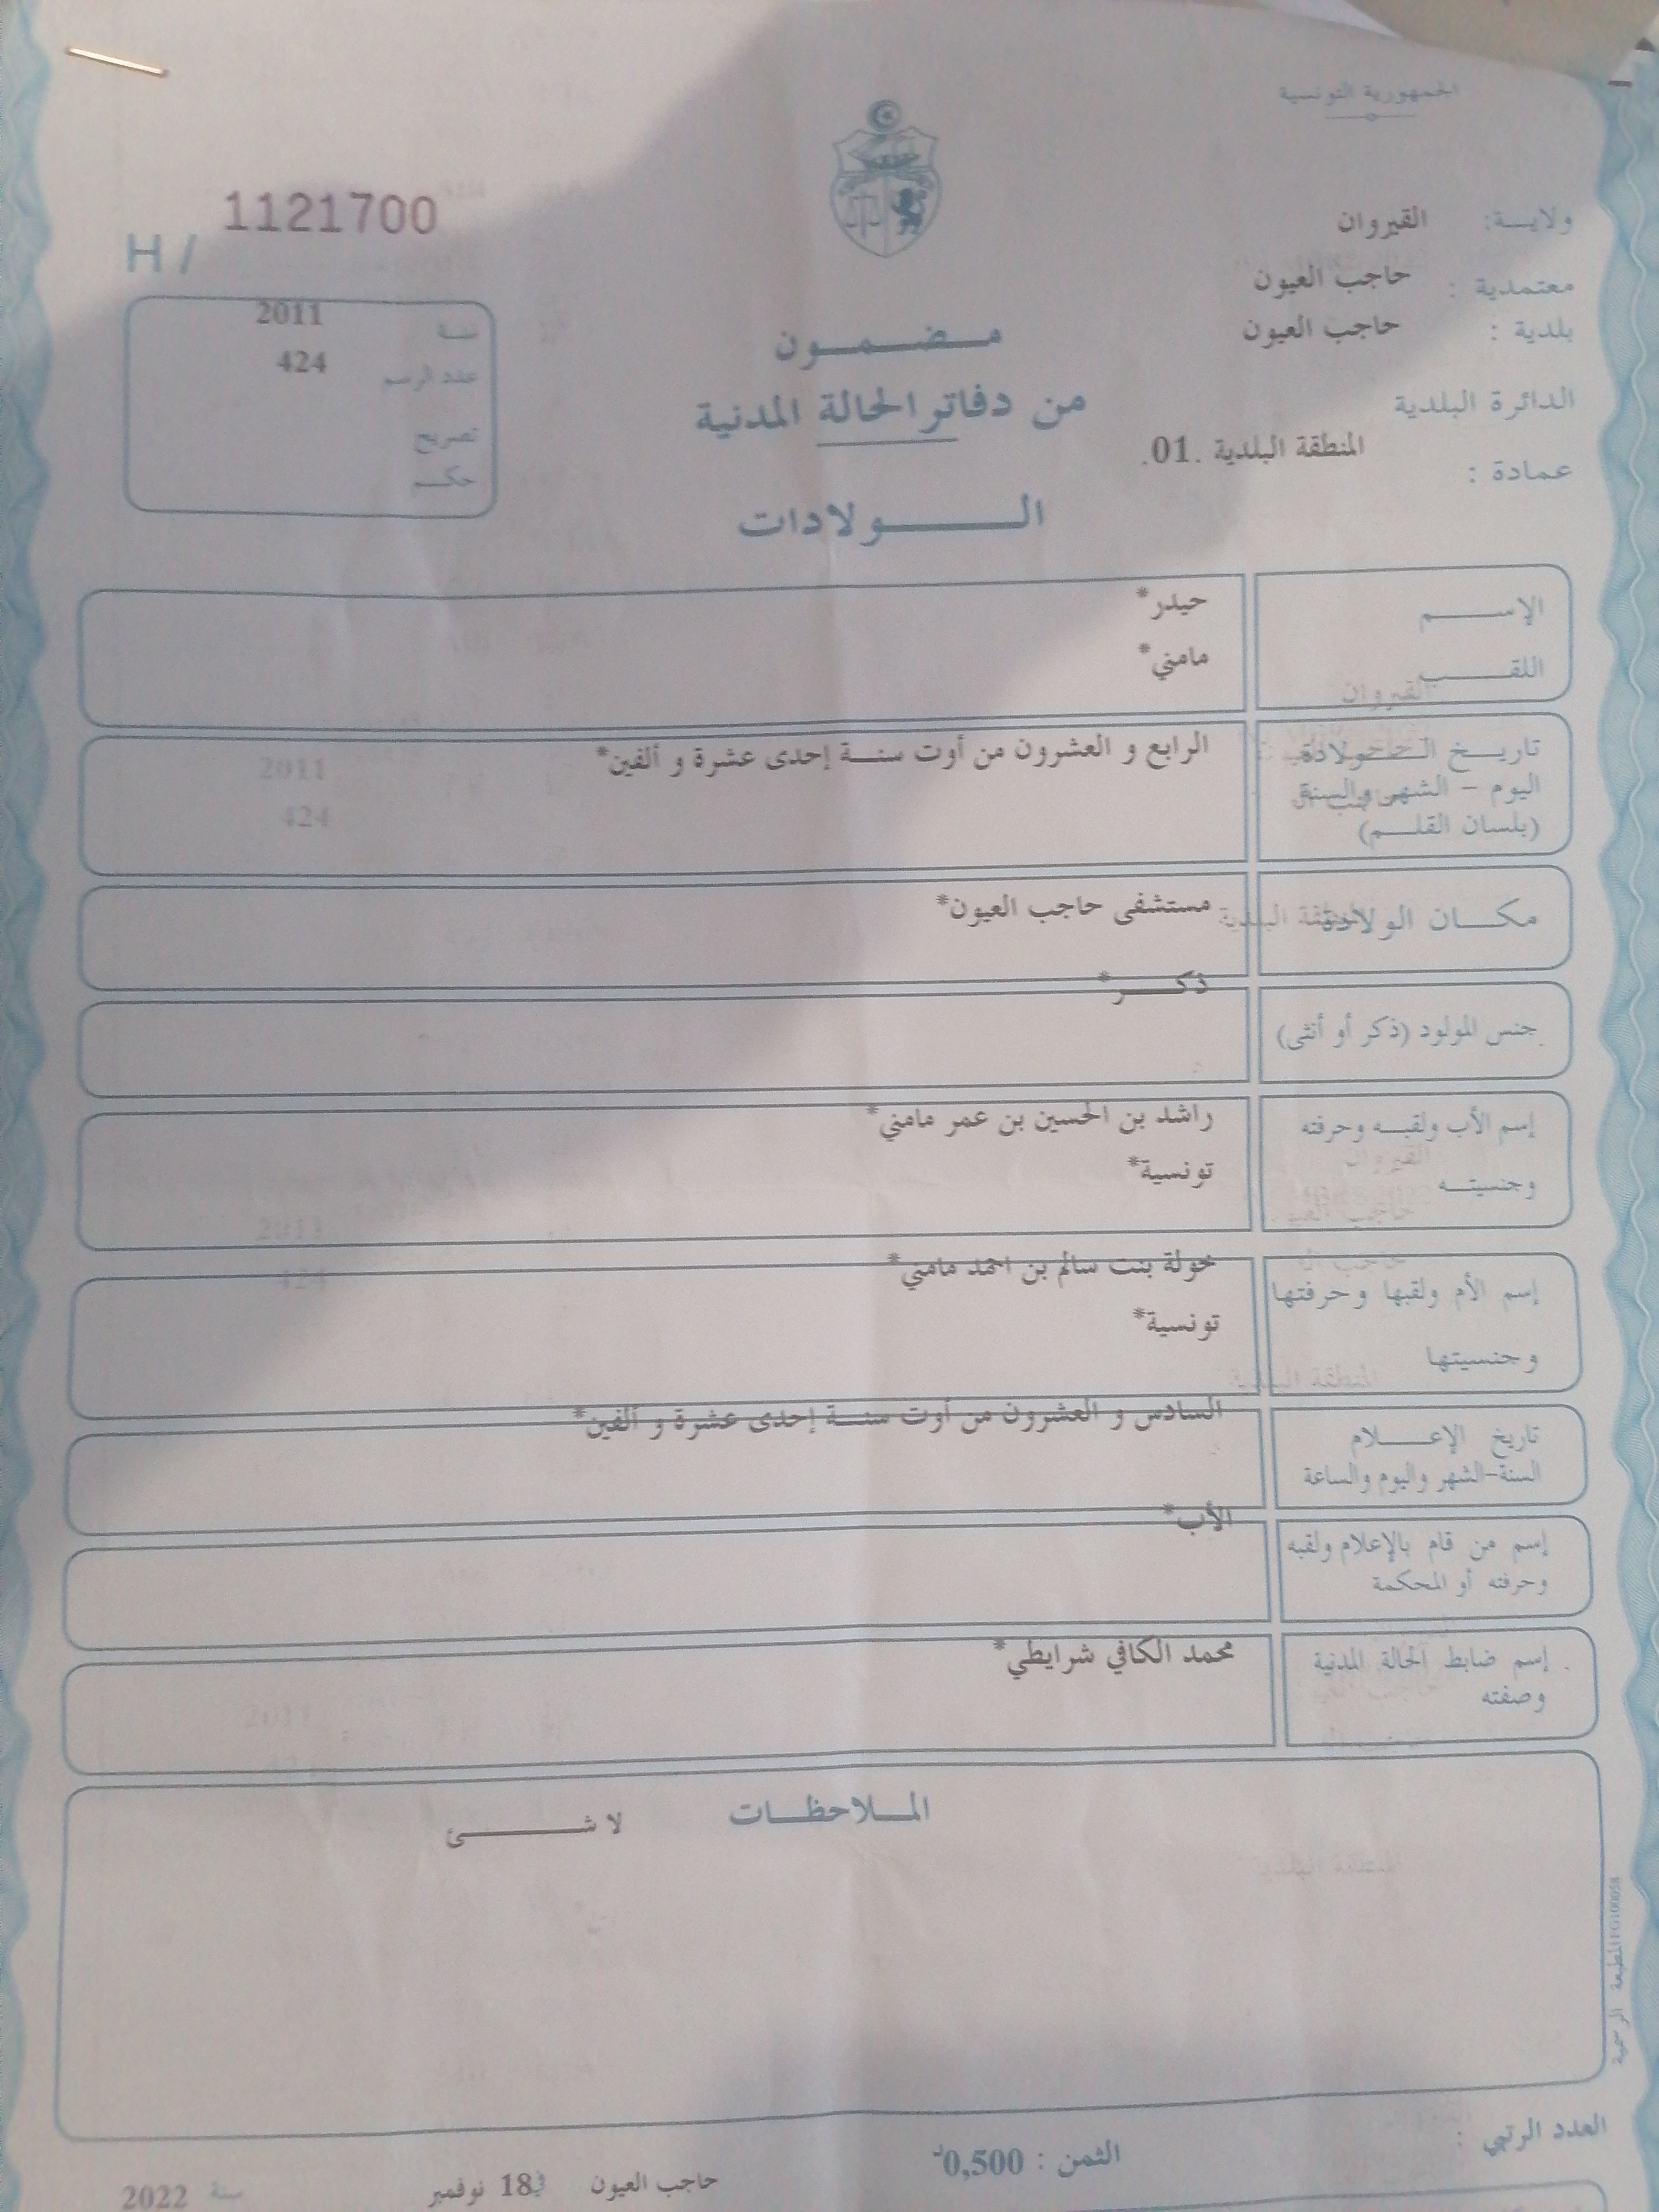 الجمهورية التونسية
ولايـــة: القيروان
معتمدية : حاجب العيون
بلدية : حاجب العيون
الدائرة البلدية
المنطقة البلدية .01.
عمادة :
H / 1121700
سنة 2011
عدد الرسم 424
تصريح
حكم
مـضـمـون
من دفاتر الحالة المدنية
الـــولادات
الإســـم حيدر*
اللقـــب مامني*
تاريـــخ الـــولادة الرابع و العشرون من أوت سنة إحدى عشرة و ألفين*
اليوم – الشهر والسنة
(بلسان القلـم)
مكـــان الولادة مستشفى حاجب العيون*
جنس المولود (ذكر أو أنثى) ذكـــر*
إسم الأب ولقبـه وحرفته راشد بن الحسين بن عمر مامني*
وجنسيتـه تونسية*
إسم الأم ولقبها وحرفتها خولة بنت سالم بن احمد مامني*
وجنسيتها تونسية*
تاريخ الإعـــلام السادس و العشرون من أوت سنة إحدى عشرة و ألفين*
السنة-الشهر واليوم والساعة
إسم من قام بالإعلام ولقبه الأب*
وحرفته أو المحكمة
إسم ضابط الحالة المدنية محمد الكافي شرايطي*
وصفته
المـلاحظـات
لا شـــئ
العدد الرتبي :
الثمن : 0,500د
حاجب العيون في 18 نوفمبر سنة 2022